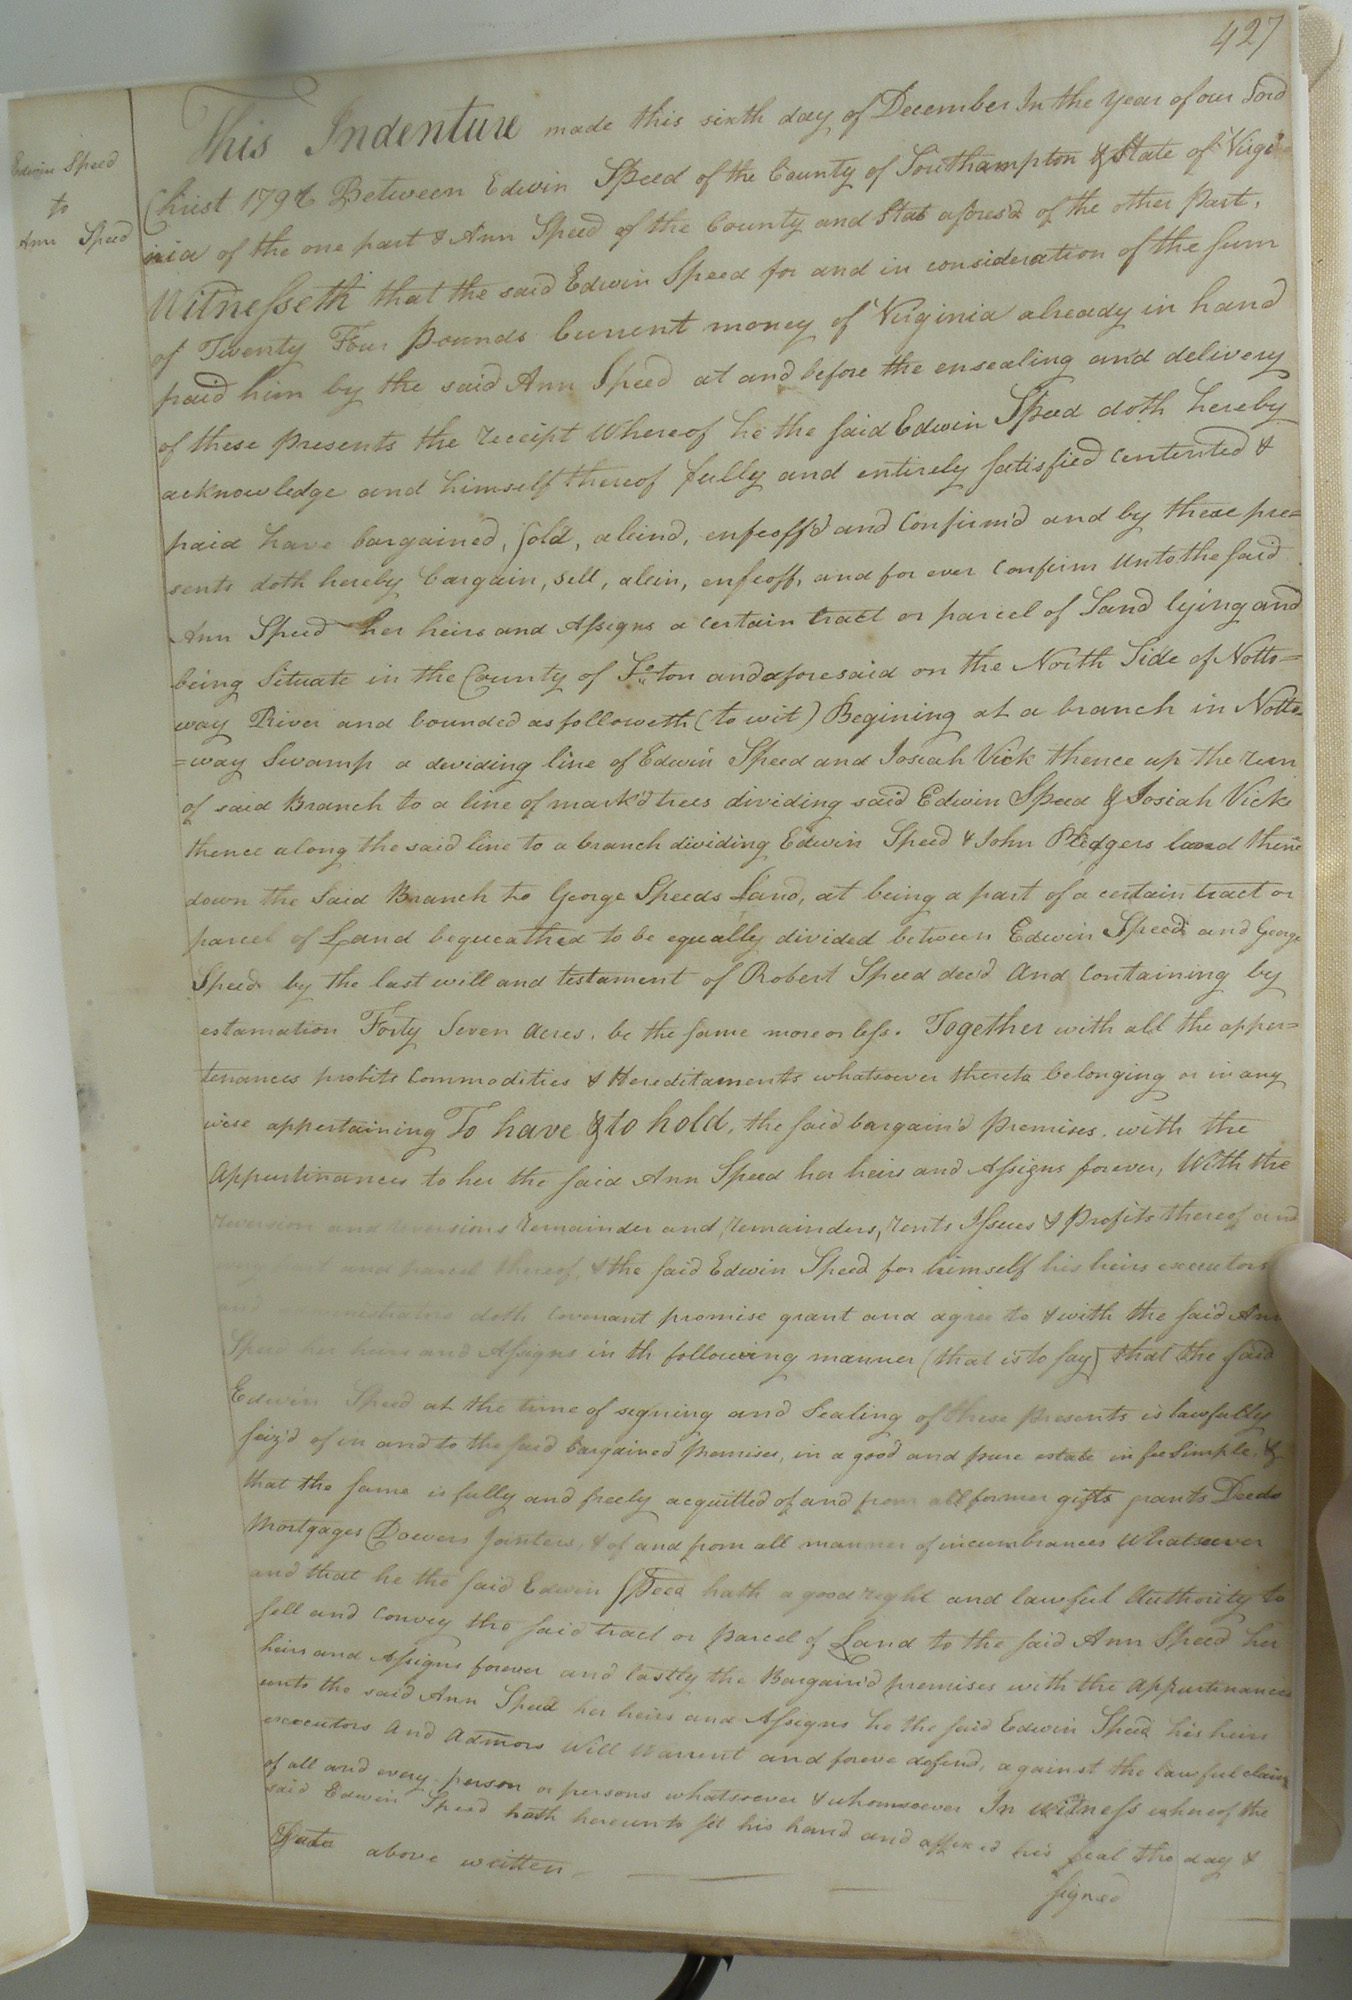 427
Edwin Speed
to
Ann Speed
This Indenture made this sixth day of December In the year of our Lord
Christ 1796 Between Edwin Speed of the County of Southampton & State of Virgi
inia of the one part & Ann Speed of the County and Stat afores'd of the other Part,
Witnesseth that the said Edwin Speed for and in consideration of the sum
of Twenty Four Pounds Current money of Virginia already in hand
paid him by the said Ann Speed at and before the ensealing and delivery
of these Presents the receipt Whereof he the said Edwin Speed doth hereby
acknowledge and himself thereof fully and entirely satisfied contented &
paid have bargained, sold, aliend, enfeoff'd and Confirm'd and by these pre=
sents doth hereby bargain, sell, alein, enfeoff, and for ever Confirm Unto the said
Ann Speed her heirs and Assigns a certain tract or parcel of Land lying and
being Situate in the County of So.ton and aforesaid on the North Side of Notto=
way River and bounded as followeth (to wit) Begining at a branch in Notto=
=way Swamp a deviding line of Edwin Speed and Josiah Vick thence up the run
of said Branch to a line of mark'd trees dividing said Edwin Speed & Josiah Vicks
thence along the said line to a branch dividing Edwin Speed & John Pledgers land thence
down the Said Branch to George Speeds Land, at being a part of a certain tract or
parcel of Land bequeathed to be equally divided between Edwin Speed and George
Speed by the last will and testament of Robert Speed dec'd And Containing by
estamation Forty Seven Acres, be the same more or less. Together with all the apper=
tenances profits Commodities & Hereditaments whatsoever thereto belonging or in any
wise appertaining To have & to hold, the said bargain'd Premises, with the
Appurtinances to her the said Ann Speed her heirs and Assigns forever, With the
reversion and reversions remainder and remainders, rents Issues & Profits thereof and
part and parcel thereof, & the said Edwin Speed for himself his heirs executors
and administrators doth Covenant promise grant and agree to & with the said Ann
Speed her heirs and Assigns in th following manner (that is to say) that the said
Edwin Speed at the time of signing and Sealing of these Presents is lawfully
seiz'd of in and to the said bargained Premises, in a good and pure estate in fee Simple, &
that the same is fully and freely acquitted of and from all former gifts grants Deeds
Mortgages Dowers Jointers, & of and from all manner of incumbrances Whatsoever
and that he the said Edwin Speed hath a good right and lawful Authority to
sell and Convey the said tract or Parcel of Land to the said Ann Speed her
heirs and Assigns forever and lastly the Bargain'd premises with the Appurtinances
unto the said Ann Speed her heirs and Assigns he the said Edwin Speed his heirs
executors And Admors Will Warrent and foreve defend, against the lawful claim
of all and every person or persons whatsoever & whomsoever In Witness whereof the
said Edwin Speed hath hereunto set his hand and affixed his seal the day &
Year above written
signed